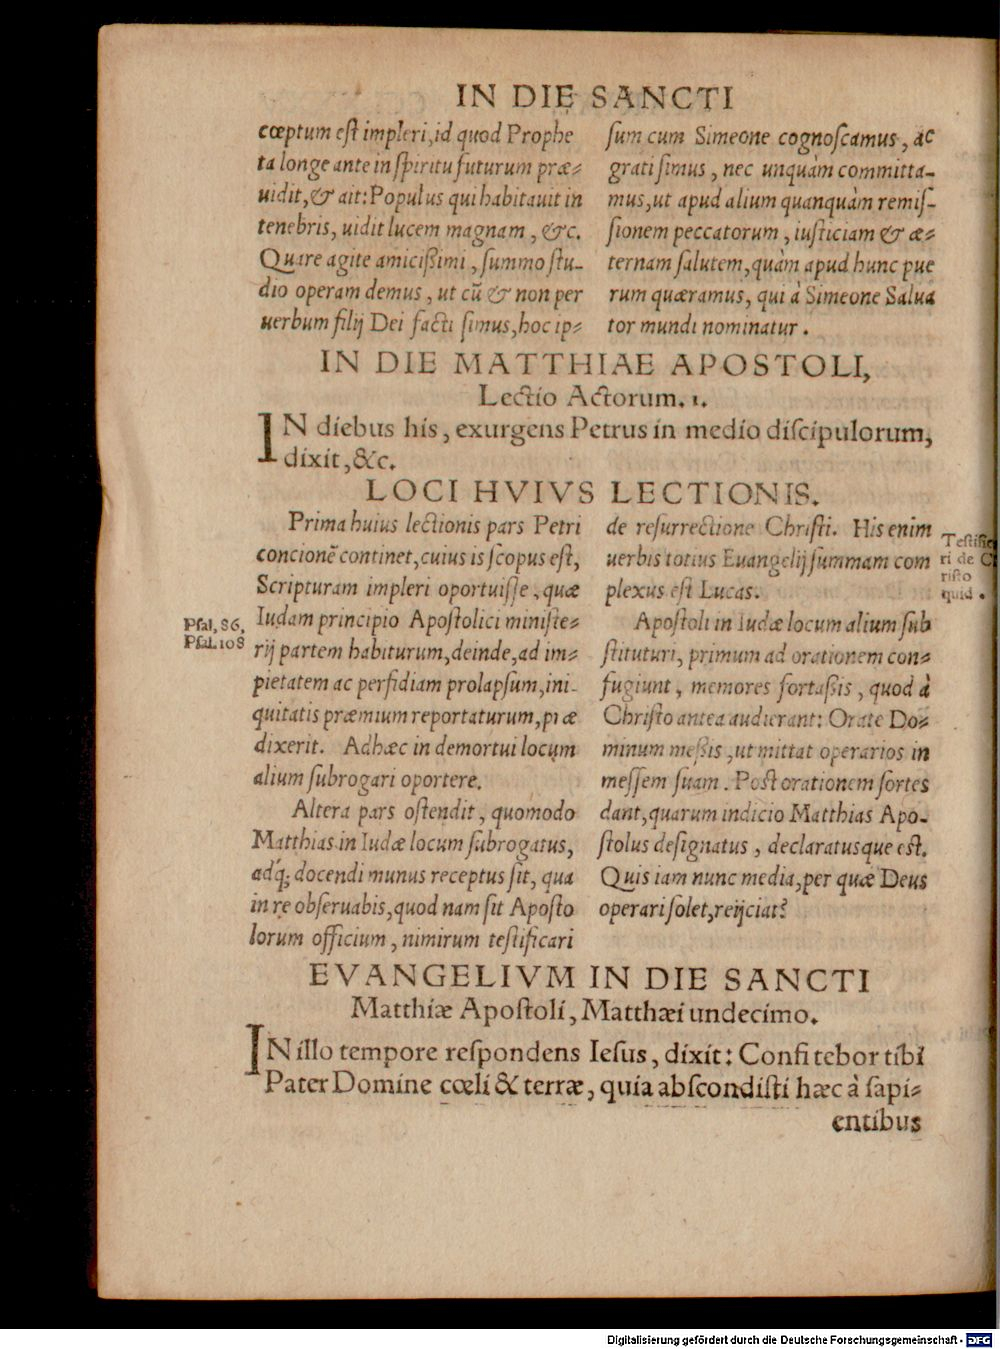 IN DIE SANCTI
cœptum eſt impleri, id quod Prophe
ta longe ante in ſpiritu futurum præ⸗
uidit, & ait: Populus qui habitauit in
tenebris, uidit lucem magnam, &c.
Quare agite amicißimi, ſummo ſtu-
dio operam demus, ut cũ & non per
uerbum filij Dei facti ſimus, hoc ip⸗
ſum cum Simeone cognoſcamus, ac
grati ſimus, nec unquàm committa-
mus, ut apud alium quanquàm remiſ-
ſionem peccatorum, iuſticiam & æ⸗
ternam ſalutem, quàm apud hunc pue
rum quæramus, qui à Simeone Salua
tor mundi nominatur.
IN DIE MATTHIAE APOSTOLI,
Lectio Actorum. 1.
IN diebus his, exurgens Petrus in medio diſcipulorum,
dixit, &c.
LOCI HVIVS LECTIONIS.
Prima huius lectionis pars Petri
concionẽ continet, cuius is ſcopus eſt,
Scripturam impleri oportuiſſe, quæ
Iudam principio Apoſtolici miniſte⸗
rij partem habiturum, deinde, ad im⸗
pietatem ac perfidiam prolapſum, ini-
quitatis præmium reportaturum, præ
dixerit. Adhæc in demortui locum
alium ſubrogari oportere.
Altera pars oſtendit, quomodo
Matthias in Iudæ locum ſubrogatus,
adq́; docendi munus receptus ſit, qua
in re obſeruabis, quod nam ſit Apoſto
lorum officium, nimirum teſtificari
Pſal. 86.
Pſal. 108
de reſurrectione Chriſti. His enim
uerbis totius Euangelij ſummam com
plexus eſt Lucas.
Apoſtoli in Iudæ locum alium ſub
ſtituturi, primum ad orationem con⸗
fugiunt, memores fortaßis, quod à
Chriſto antea audierant: Orate Do⸗
minum meßis, ut mittat operarios in
meſſem ſuam. Poſt orationem ſortes
dant, quarum indicio Matthias Apo-
ſtolus deſignatus, declaratusque eſt.
Quis iam nunc media, per quæ Deus
operari ſolet, reijciat?
Teſtific
ri de C
riſto
quid.
EVANGELIVM IN DIE SANCTI
Matthiæ Apoſtoli, Matthæi undecimo.
IN illo tempore reſpondens Ieſus, dixit: Confitebor tibi
Pater Domine cœli & terræ, quia abſcondiſti hæc à ſapi⸗
entibus
Digitalisierung gefördert durch die Deutsche Forschungsgemeinschaft - DFG